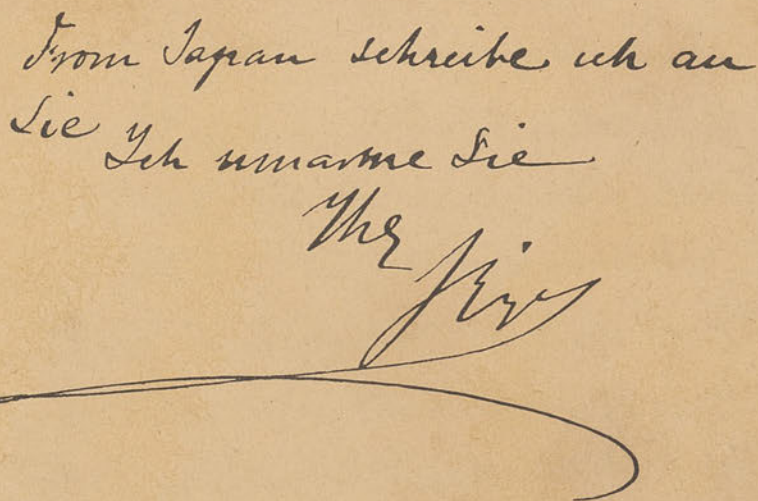 From Japan schreibe ich an
Sie
Ich umarme Sie
Ihr